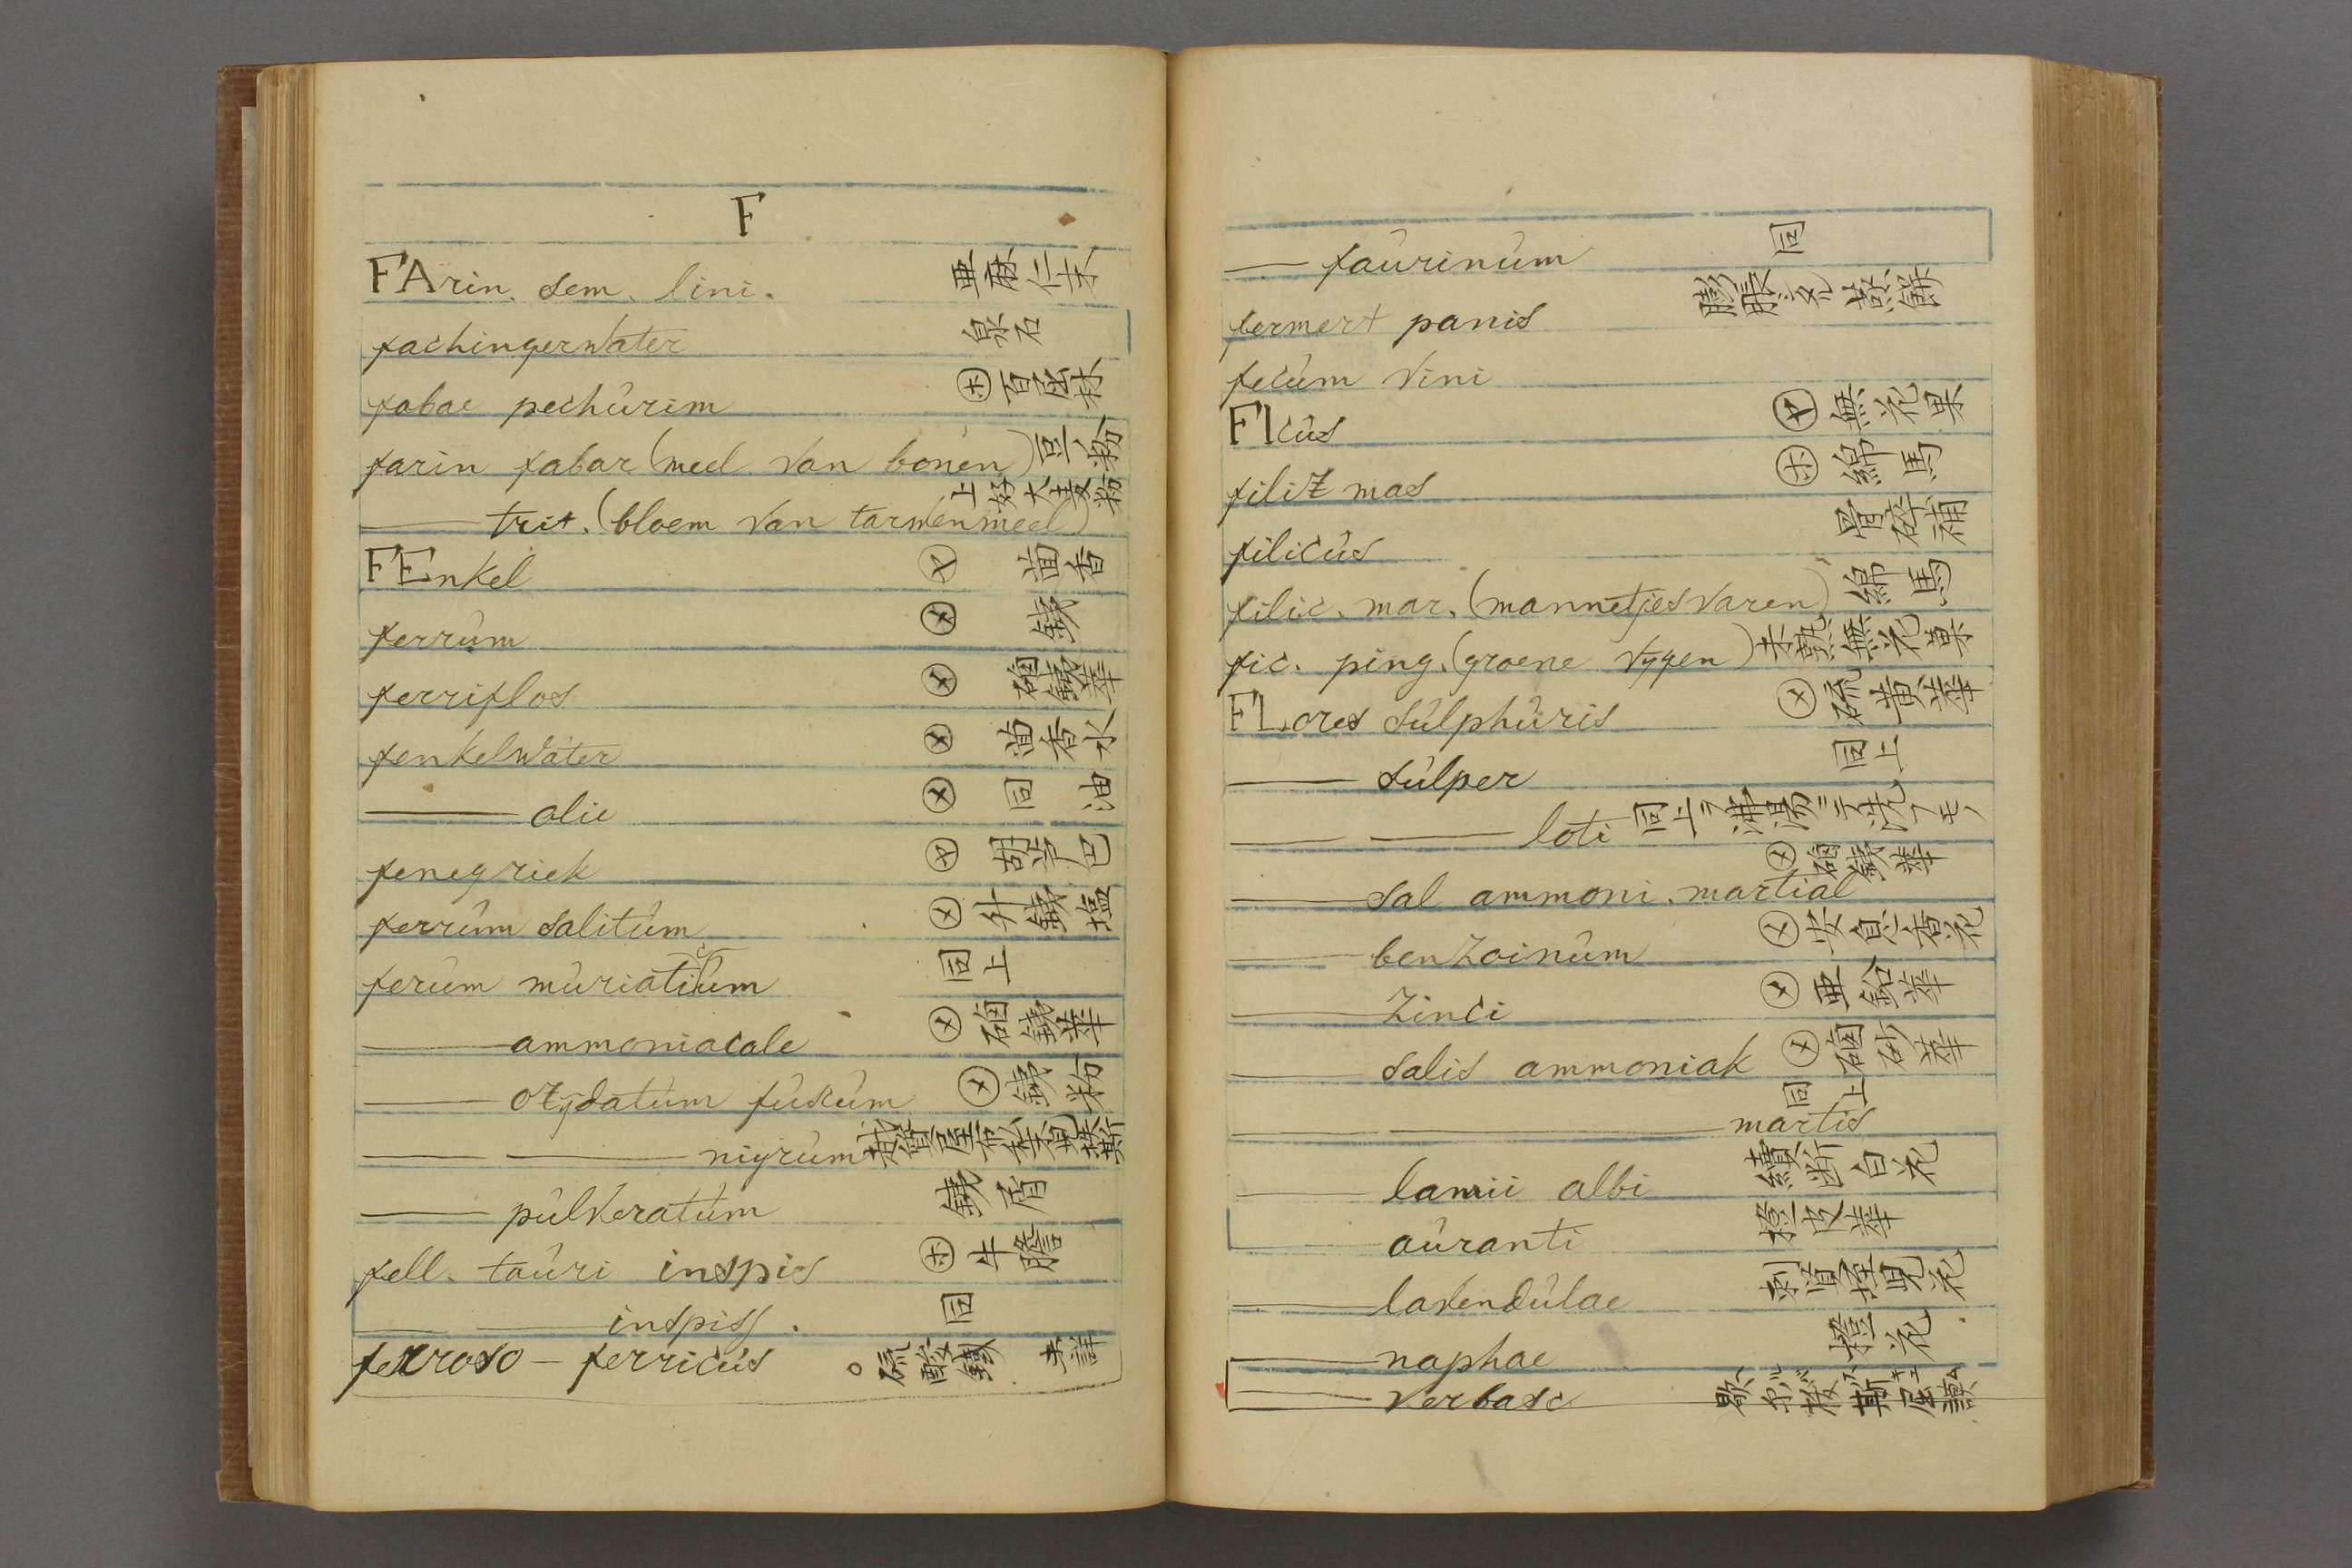 F
FArin. sem. lini. 亜麻仁末
fachingerwater 泉石
fabae pechúrim ㋭ 百屈林
farin fabar (meel van bonen) 豆粉
—— trit. (bloem van tarwenmeel) 上好大麦粉
FEnkel ㋳ 茴香
ferrúm ㋱ 鉄
ferriflos ㋱ 磠鉄華
fenkelwater ㋱ 茴香水
—— olie ㋱ 同油
fenegriek ㋳ 胡芦巴
ferrúm salitúm ㋱ 舛鉄塩
ferúm múriaticúm 同上
—— ammoniacale ㋱ 磠鉄華
—— oxÿdatúm fúscúm ㋱ 鉄粉
—— —— nigrúm
—— púlveratúm 鉄屑
fell. taúri inspis ㋭ 牛膽
—— —— inspiss. 同
ferroso – ferricús 。硫酸鐵 未詳
—— faúrinúm 同
fermert panis 膨脹シタル蒸餅
fecúm vini
FIcús ㋳ 無花果
filix mas ㋭ 綿馬
filicús 骨碎補
filic. mar. (mannetjesvaren) 綿馬
fic. ping. (groene vygen) 未熟無花菓
FLores súlphúris ㋱ 硫黄華
—— súlper 同上
—— —— loti 同上ヲ沸湯ニテ洗フモノ
—— sal ammoni. martial ㋱ 磠鉄華
—— benzoinúm ㋱ 安息香花
—— zinci ㋱ 亜鉛華
—— salis ammoniak ㋱ 磠砂華
—— —— martis 同上
—— lamii albi 續断白花
—— aúranti 橙皮華
—— lavendúlae
—— naphae 橙花
—— verbasc